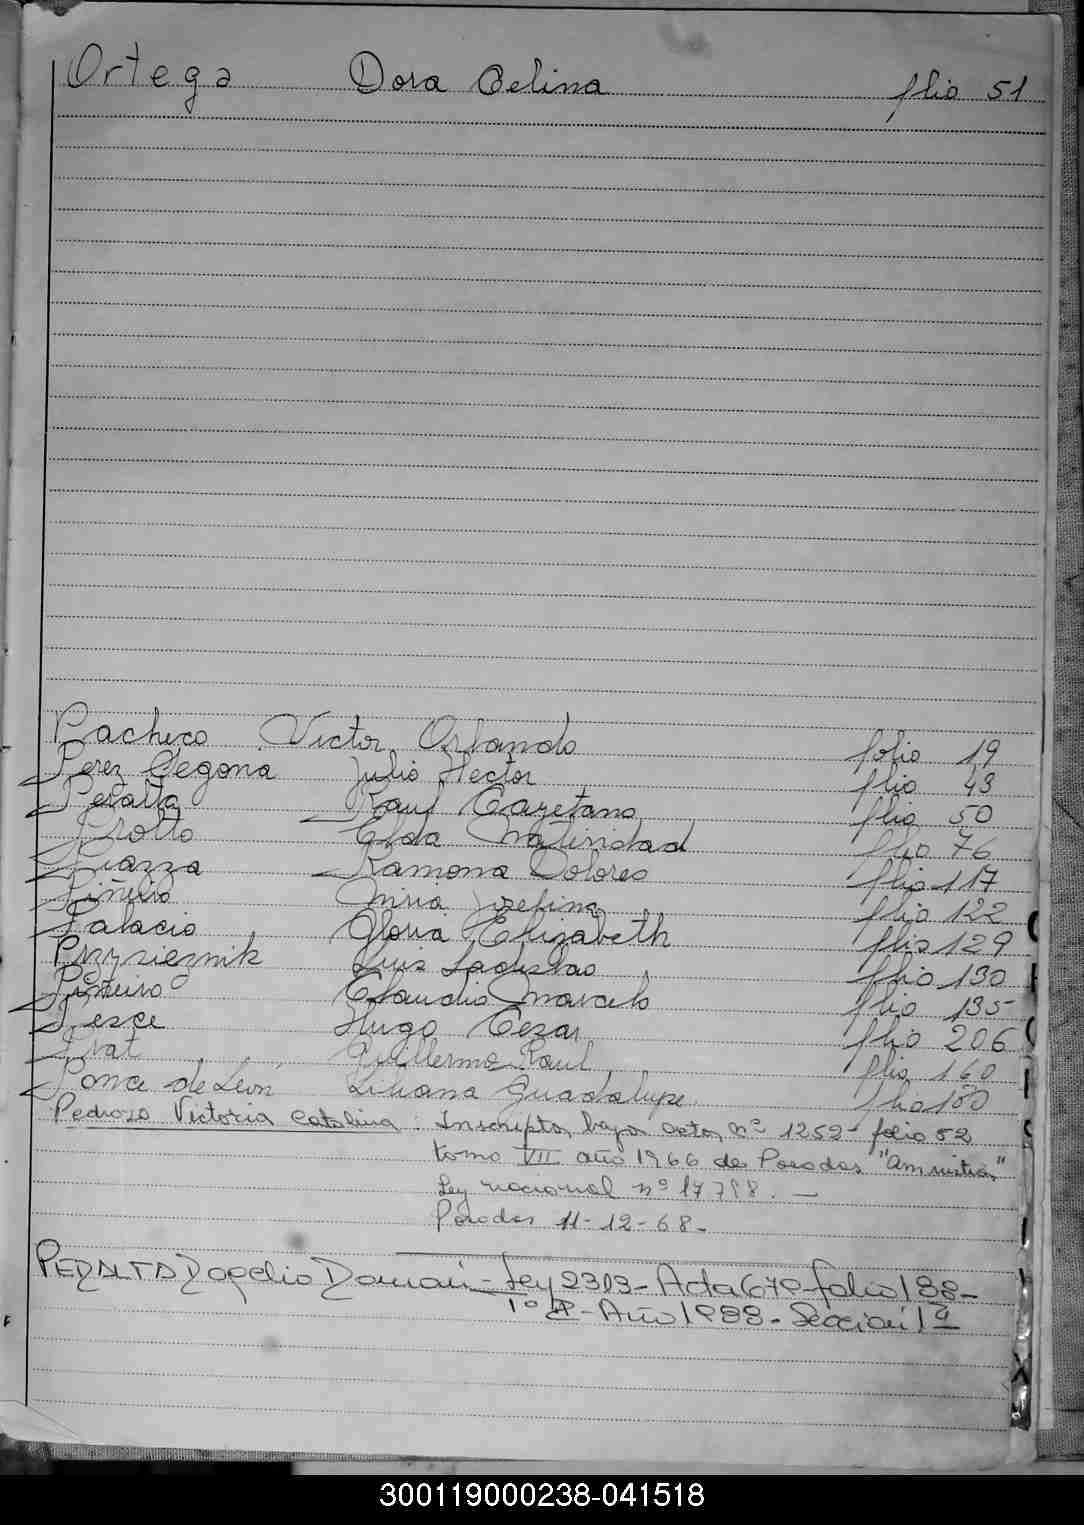 Ortega Dora Celina flio 51
Pacheco Victor Orlando folio 19
Perez Segona Julio Hector flio 43
Peralta Raul Cayetano flio 50
Protto Elda Natividad flio 76
Piazza Ramona Dolores flio 117
Piñeiro Miria Josefina flio 122
Palacio Gloria Elizabeth flio 129
Przysieznik Luis Ladislao flio 130
Piñeiro Claudio Marcelo flio 135
Pesce Hugo Cezar flio 206
Prat Guillermo Raul flio 160
Ponce de León Liliana Guadalupe flio 180
Pedrozo Victoria Catalina: Inscripta bajo acta nº 1252 folio 52
tomo VII año 1966 de Posadas "Amnistia"
Ley nacional nº 17.718. —
Posadas 11-12-68-
PERALTA Rogelio Damian - Ley 2313 - Acta 679 - folio 188 -
1º - Año 1988 - Sección 1ª
300119000238-041518